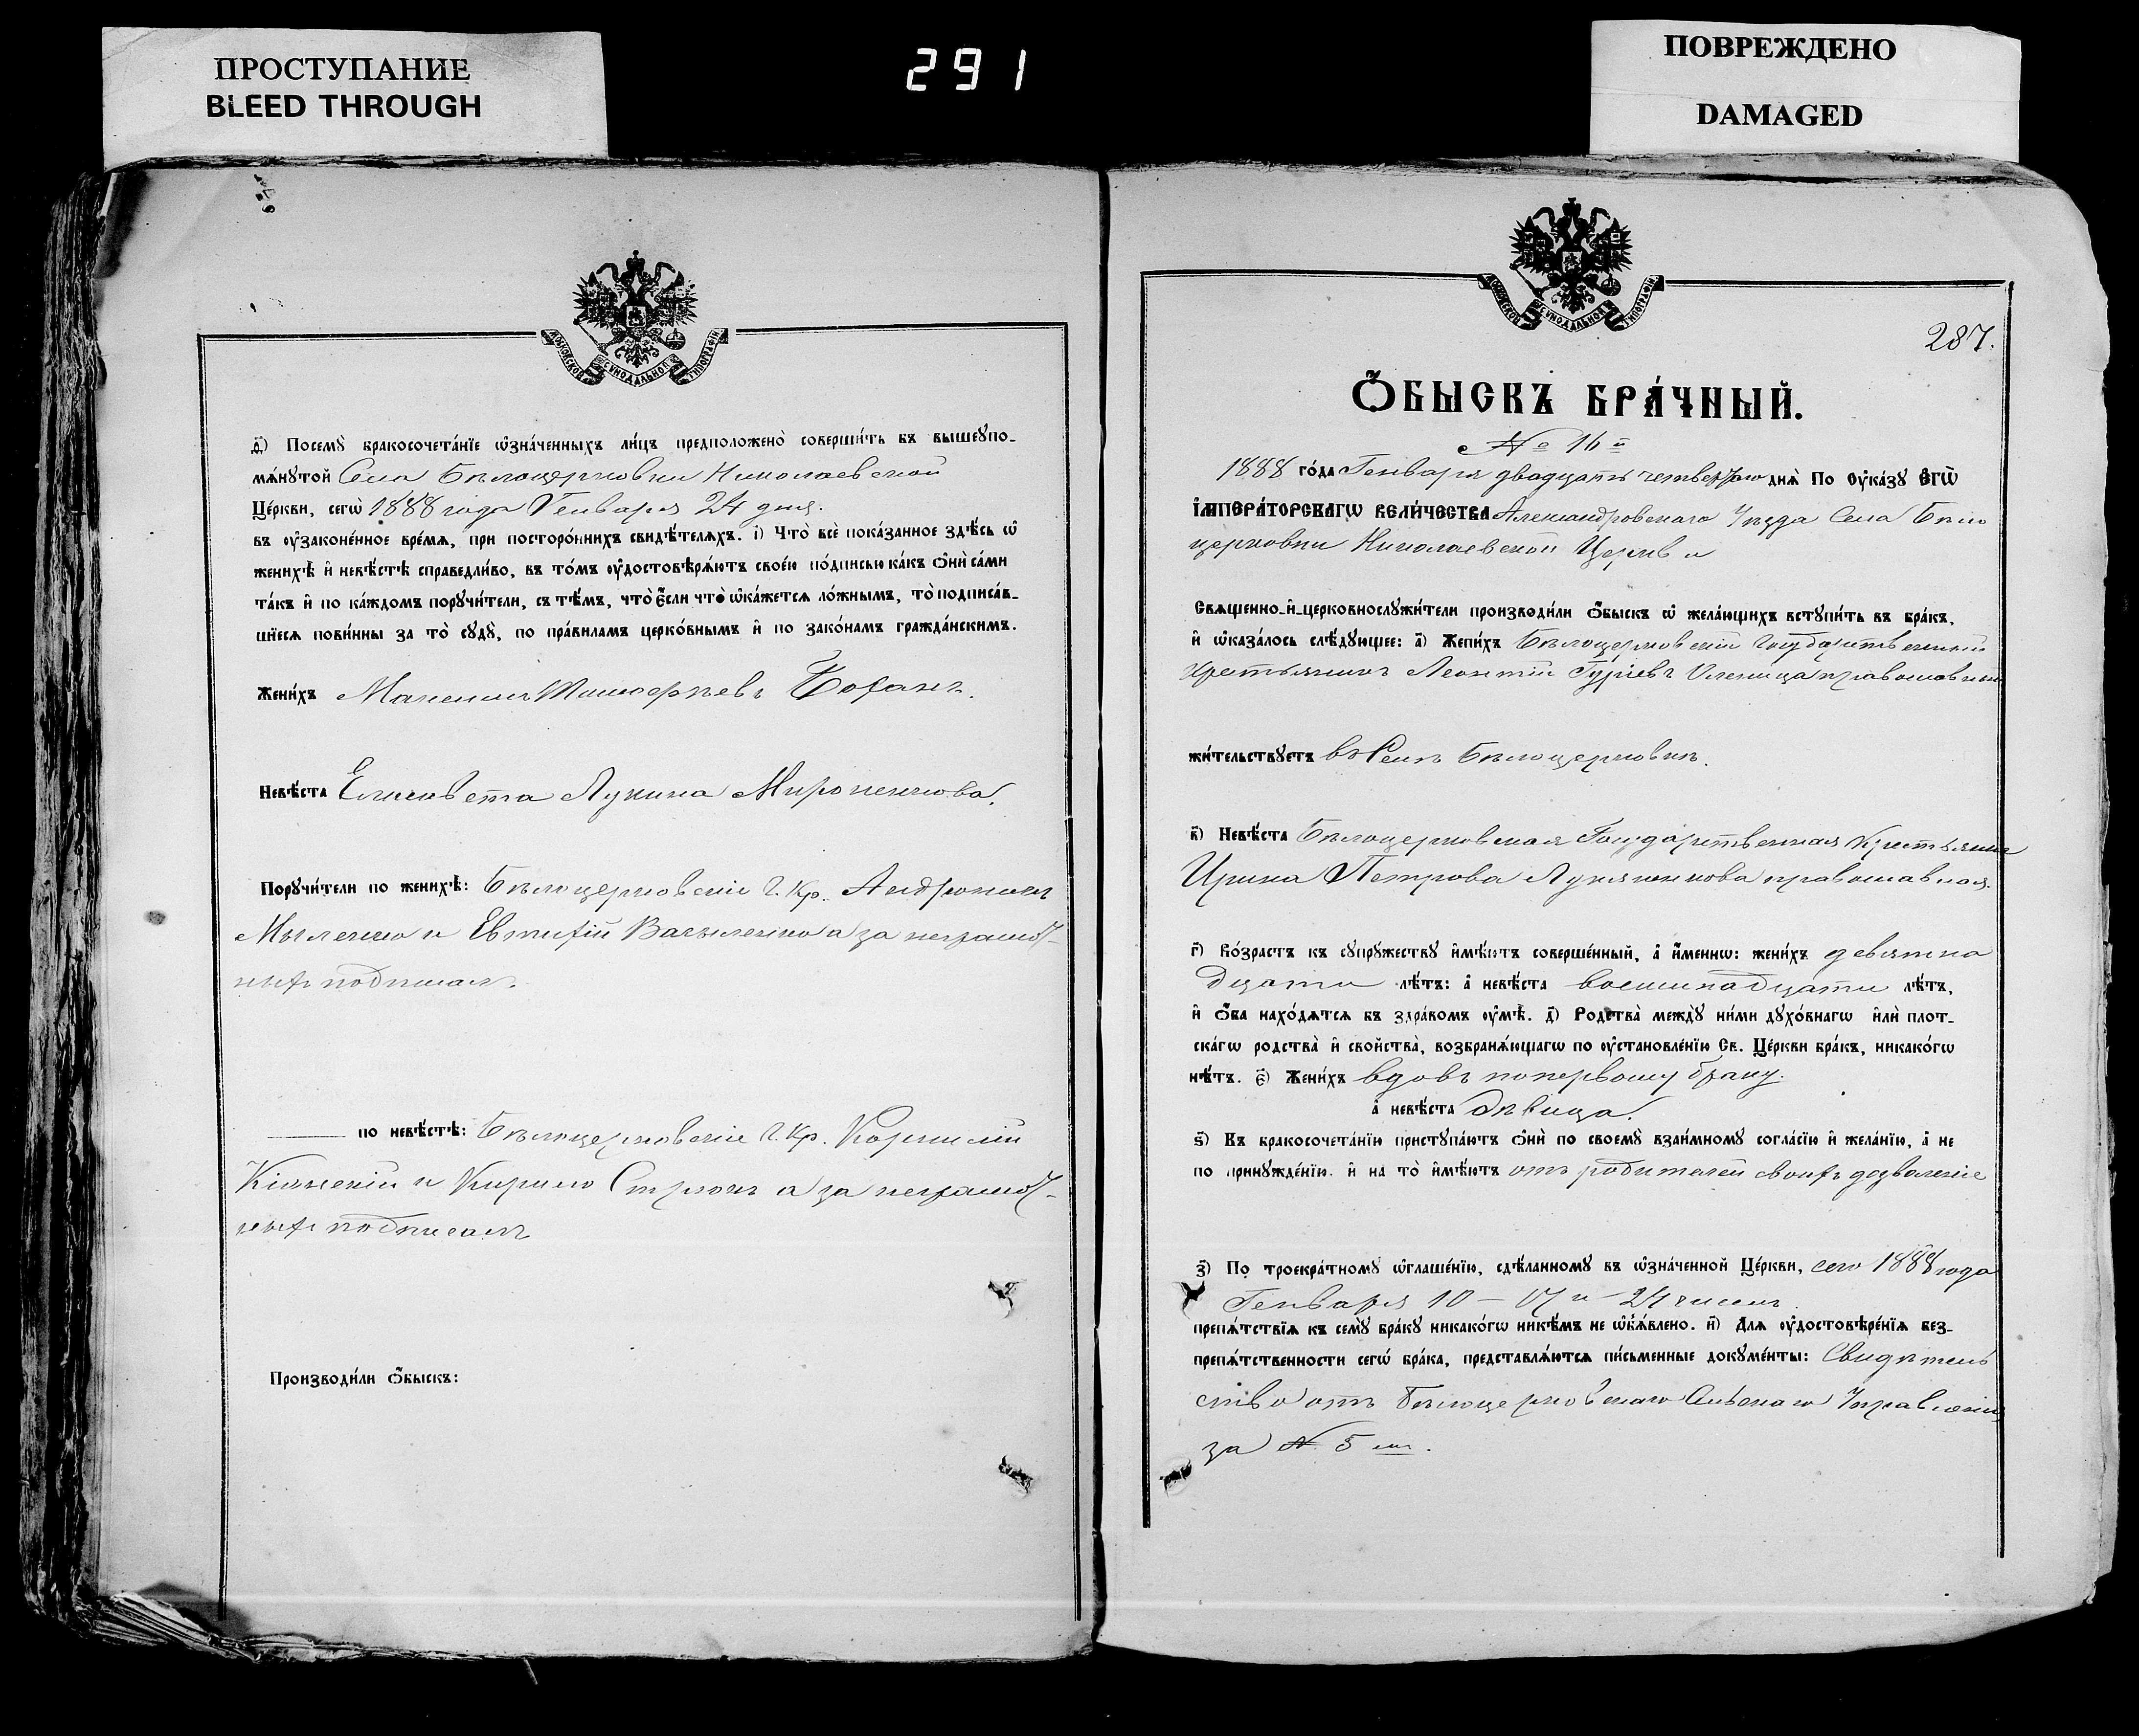 ПРОСТУПАНИЕ
BLEED THROUGH
291
ПОВРЕЖДЕНО
DAMAGED
МОСКОВСКОЙ СѴНОДАЛЬНОЙ ТИПОГРАФІИ
д҃) Посемꙋ̀ бракосочета́нїе ѡ҆зна́ченныхъ ли́цъ предположено̀ соверши́ть въ вышеꙋпо-
мѧ́нꙋтой Села Бѣлоцерковки Николаевской
Це́ркви, сегѡ̀ 1888 года Генваря 24 дня.
въ ᲂу҆законе́нное вре́мѧ, при посторо́ннихъ свидѣ́телѧхъ. і҃) Что̀ всѐ пока́занное здѣ́сь ѡ҆
женихѣ̀ и҆ невѣ́стѣ справедли́во, въ то́мъ ᲂу҆достовѣрѧ́ютъ свое́ю по́дписью ка́къ ѻ҆нѝ са́ми
та́къ и҆ по ка́ждомъ порꙋчи́тели, съ тѣ́мъ, что̀ є҆́сли что̀ ѡ҆ка́жетсѧ ло́жнымъ, то̀ подписа́в-
шїесѧ пови́нны за то̀ сꙋдꙋ̀, по пра́виламъ церко́внымъ и҆ по зако́намъ гражда́нскимъ.
Жени́хъ Максимъ Тимофѣевъ Коханъ.
Невѣ́ста Елисавета Лукина Мироненкова.
Порꙋчи́тели по женихѣ̀: Бѣлоцерковскіе Г. Кр. Андроникъ
и Евтифій Василенко а за неграмот-
ныхъ подписалъ.
по невѣ́стѣ: Бѣлоцерковскіе Г. Кр. Корнилій
и Кирило а за неграмот-
ныхъ подписалъ
Производи́ли ѻ҆́быскъ:
МОСКОВСКОЙ СѴНОДАЛЬНОЙ ТИПОГРАФІИ
287.
Ѻ҆́БЫСКЪ БРА́ЧНЫЙ.
№ 16й
1888 го́да Генваря двадцать четвертаго днѧ̀ По ᲂу҆ка́зꙋ Є҆гѡ̀
І҆МПЕРА́ТОРСКАГѠ ВЕЛИ́ЧЕСТВА Александровскаго Уѣзда Села Бѣло
церковки Николаевской Церкви
Свѧще́нно-и҆-церковнослꙋжи́тели производи́ли ѻ҆́быскъ ѡ҆ жела́ющихъ встꙋпи́ть въ бра́къ,
и҆ ѡ҆каза́лось слѣ́дꙋющее: а҃) Жени́хъ Бѣлоцерковскій Государственный
Крестьянинъ Леонтій Гуріевъ православный
жи́тельствꙋетъ въ Селѣ Бѣлоцерковкѣ.
в҃) Невѣ́ста Бѣлоцерковская Государственная Крестьянка
Ирина Петрова Лукяненкова православная.
г҃) Во́зрастъ къ сꙋпрꙋ́жествꙋ и҆мѣ́ютъ соверше́нный, а҆ и҆́менно: жени́хъ девятна
дцати лѣ́тъ: а҆ невѣ́ста восемнадцати лѣ́тъ,
и҆ ѻ҆́ба нахо́дѧтсѧ въ здра́вомъ ᲂу҆мѣ̀. д҃) Родства̀ междꙋ̀ ни́ми дꙋхо́внагѡ и҆лѝ плот-
ска́гѡ родства̀ и҆ сво́йства̀, возбранѧ́ющагѡ по ᲂу҆становле́нїю Св. Це́ркви бра́къ, никако́гѡ
нѣ́тъ. є҃) Жени́хъ вдовъ по первому браку.
а҆ невѣ́ста дѣвица.
ѕ҃) Къ бракосочета́нїю пристꙋпа́ютъ ѻ҆нѝ по своемꙋ̀ взаи́мномꙋ согла́сїю и҆ жела́нїю, а҆ не
по принꙋжде́нїю. и҆ на то̀ и҆мѣ́ютъ отъ родителей своихъ дозволеніе
з҃) По троекра́тномꙋ ѡ҆глаше́нїю, сдѣ́ланномꙋ въ ѡ҆зна́ченной Це́ркви, сего 1888 года
Генваря 10 – 17 и – 24 чиселъ
препѧ́тствїѧ къ семꙋ̀ бра́кꙋ никако́гѡ никѣ́мъ не ѡ҆б̾ѧ́влено. и҃) Длѧ ᲂу҆достовѣре́нїѧ без-
препѧ́тственности сегѡ̀ бра́ка, представлѧ́ютсѧ пи́сьменные докꙋме́нты: Свидѣтель
ство отъ Бѣлоцерковскаго Сельскаго Управленія
за № 5 мъ.